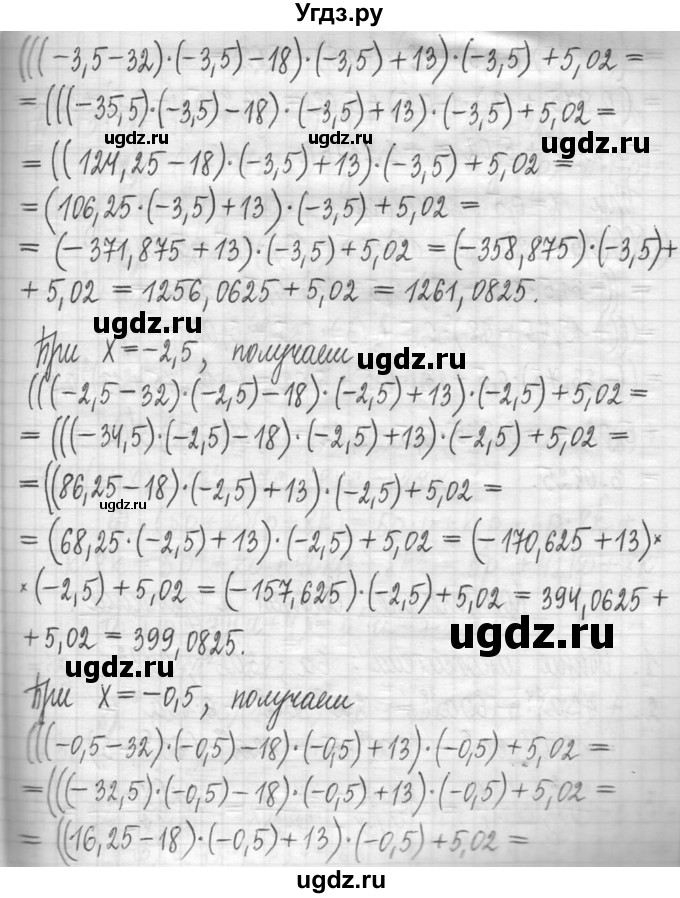 Угдз.ру
(((-3,5-32)·(-3,5)-18)·(-3,5)+13)·(-3,5)+5,02=
=(((-35,5)·(-3,5)-18)·(-3,5)+13)·(-3,5)+5,02=
ugdz.ru ugdz.ru ugdz.ru
=((124,25-18)·(-3,5)+13)·(-3,5)+5,02=
=(106,25·(-3,5)+13)·(-3,5)+5,02=
=(-371,875+13)·(-3,5)+5,02=(-358,875)·(-3,5)+
+5,02=1256,0625+5,02=1261,0825.
ugdz.ru
При x=-2,5, получаем
ugdz.ru
(((-2,5-32)·(-2,5)-18)·(-2,5)+13)·(-2,5)+5,02=
=(((-34,5)·(-2,5)-18)·(-2,5)+13)·(-2,5)+5,02=
=((86,25-18)·(-2,5)+13)·(-2,5)+5,02=
ugdz.ru
=(68,25·(-2,5)+13)·(-2,5)+5,02=(-170,625+13)×
×(-2,5)+5,02=(-157,625)·(-2,5)+5,02=394,0625+
+5,02=399,0825.
ugdz.ru
ugdz.ru
При x=-0,5, получаем
(((-0,5-32)·(-0,5)-18)·(-0,5)+13)·(-0,5)+5,02=
=(((-32,5)·(-0,5)-18)·(-0,5)+13)·(-0,5)+5,02=
=((16,25-18)·(-0,5)+13)·(-0,5)+5,02=
ugdz.ru